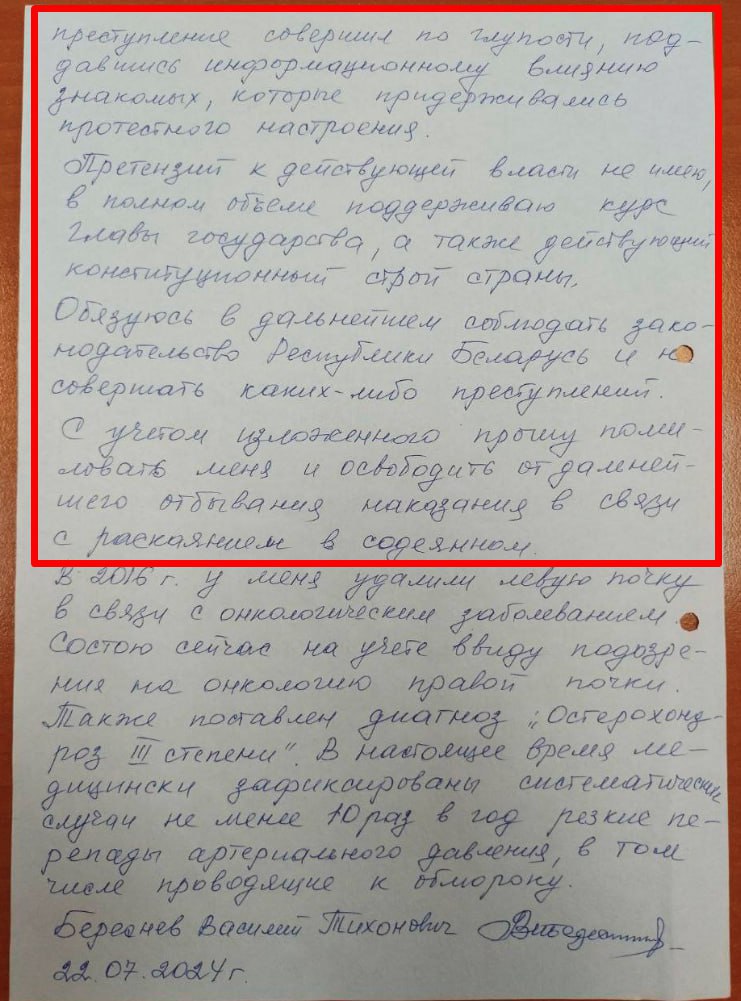 преступление совершил по глупости, под-
давшись информационному влиянию
знакомых, которые придерживались
протестного настроения.
Претензий к действующей власти не имею,
в полном объеме поддерживаю курс
Главы государства, а также действующий
конституционный строй страны.
Обязуюсь в дальнейшем соблюдать зако-
нодательство Республики Беларусь и не
совершать каких-либо преступлений.
С учетом изложенного прошу поми-
ловать меня и освободить от дальней-
шего отбывания наказания в связи
с раскаянием в содеянном.
В 2016 г. у меня удалили левую почку
в связи с онкологическим заболеванием.
Состою сейчас на учете ввиду подозре-
ния на онкологию правой почки.
Также поставлен диагноз „Остерохонд-
роз III степени". В настоящее время ме-
дицински зафиксированы систематические
случаи не менее 10 раз в год резкие пе-
репады артериального давления, в том
числе проводящие к обмороку.
Береснев Василий Тихонович
22.07.2024 г.